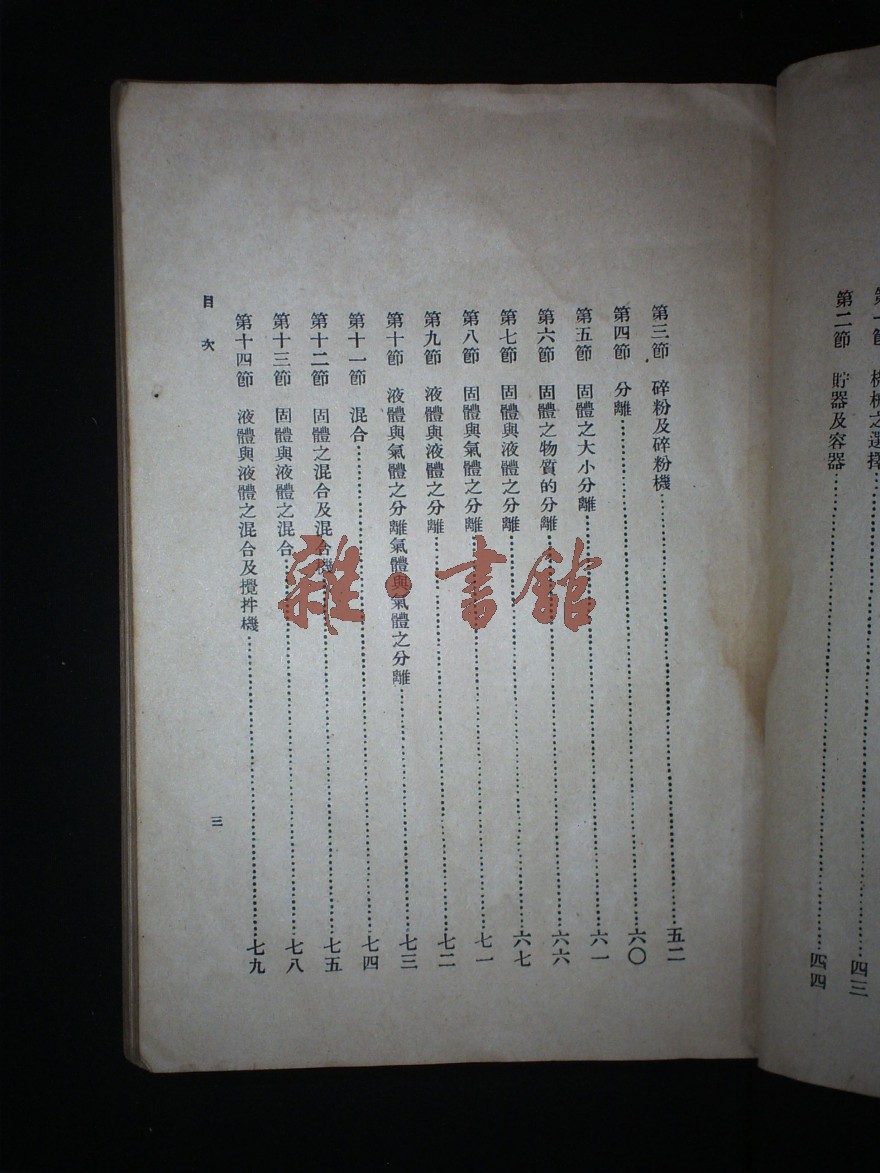 機械之選擇……四三
第二節 貯器及容器……四四
第三節 碎粉及碎粉機……五二
第四節 分離……六〇
第五節 固體之大小分離……六一
第六節 固體之物質的分離……六六
第七節 固體與液體之分離……六七
第八節 固體與氣體之分離……七一
第九節 液體與液體之分離……七二
第十節 液體與氣體之分離氣體與氣體之分離……七三
第十一節 混合……七四
第十二節 固體之混合及混合機……七五
第十三節 固體與液體之混合……七八
第十四節 液體與液體之混合及攪拌機……七九
目次
三
雜·書館